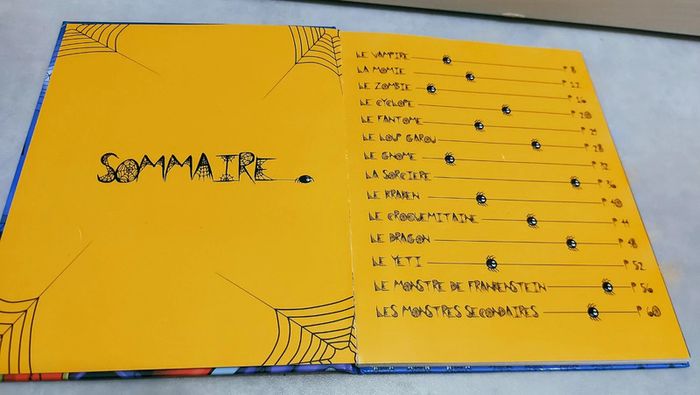 SOMMAIRE
LE VAMPIRE P 8
LA MOMIE P 12
LE ZOMBIE P 16
LE CYCLOPE P 20
LE FANTOME P 24
LE LOUP GAROU P 28
LE GNOME P 32
LA SORCIERE P 36
LE KRAKEN P 40
LE CROQUEMITAINE P 44
LE DRAGON P 48
LE YETI P 52
LE MONSTRE DE FRANKENSTEIN P 56
LES MONSTRES SECONDAIRES P 60